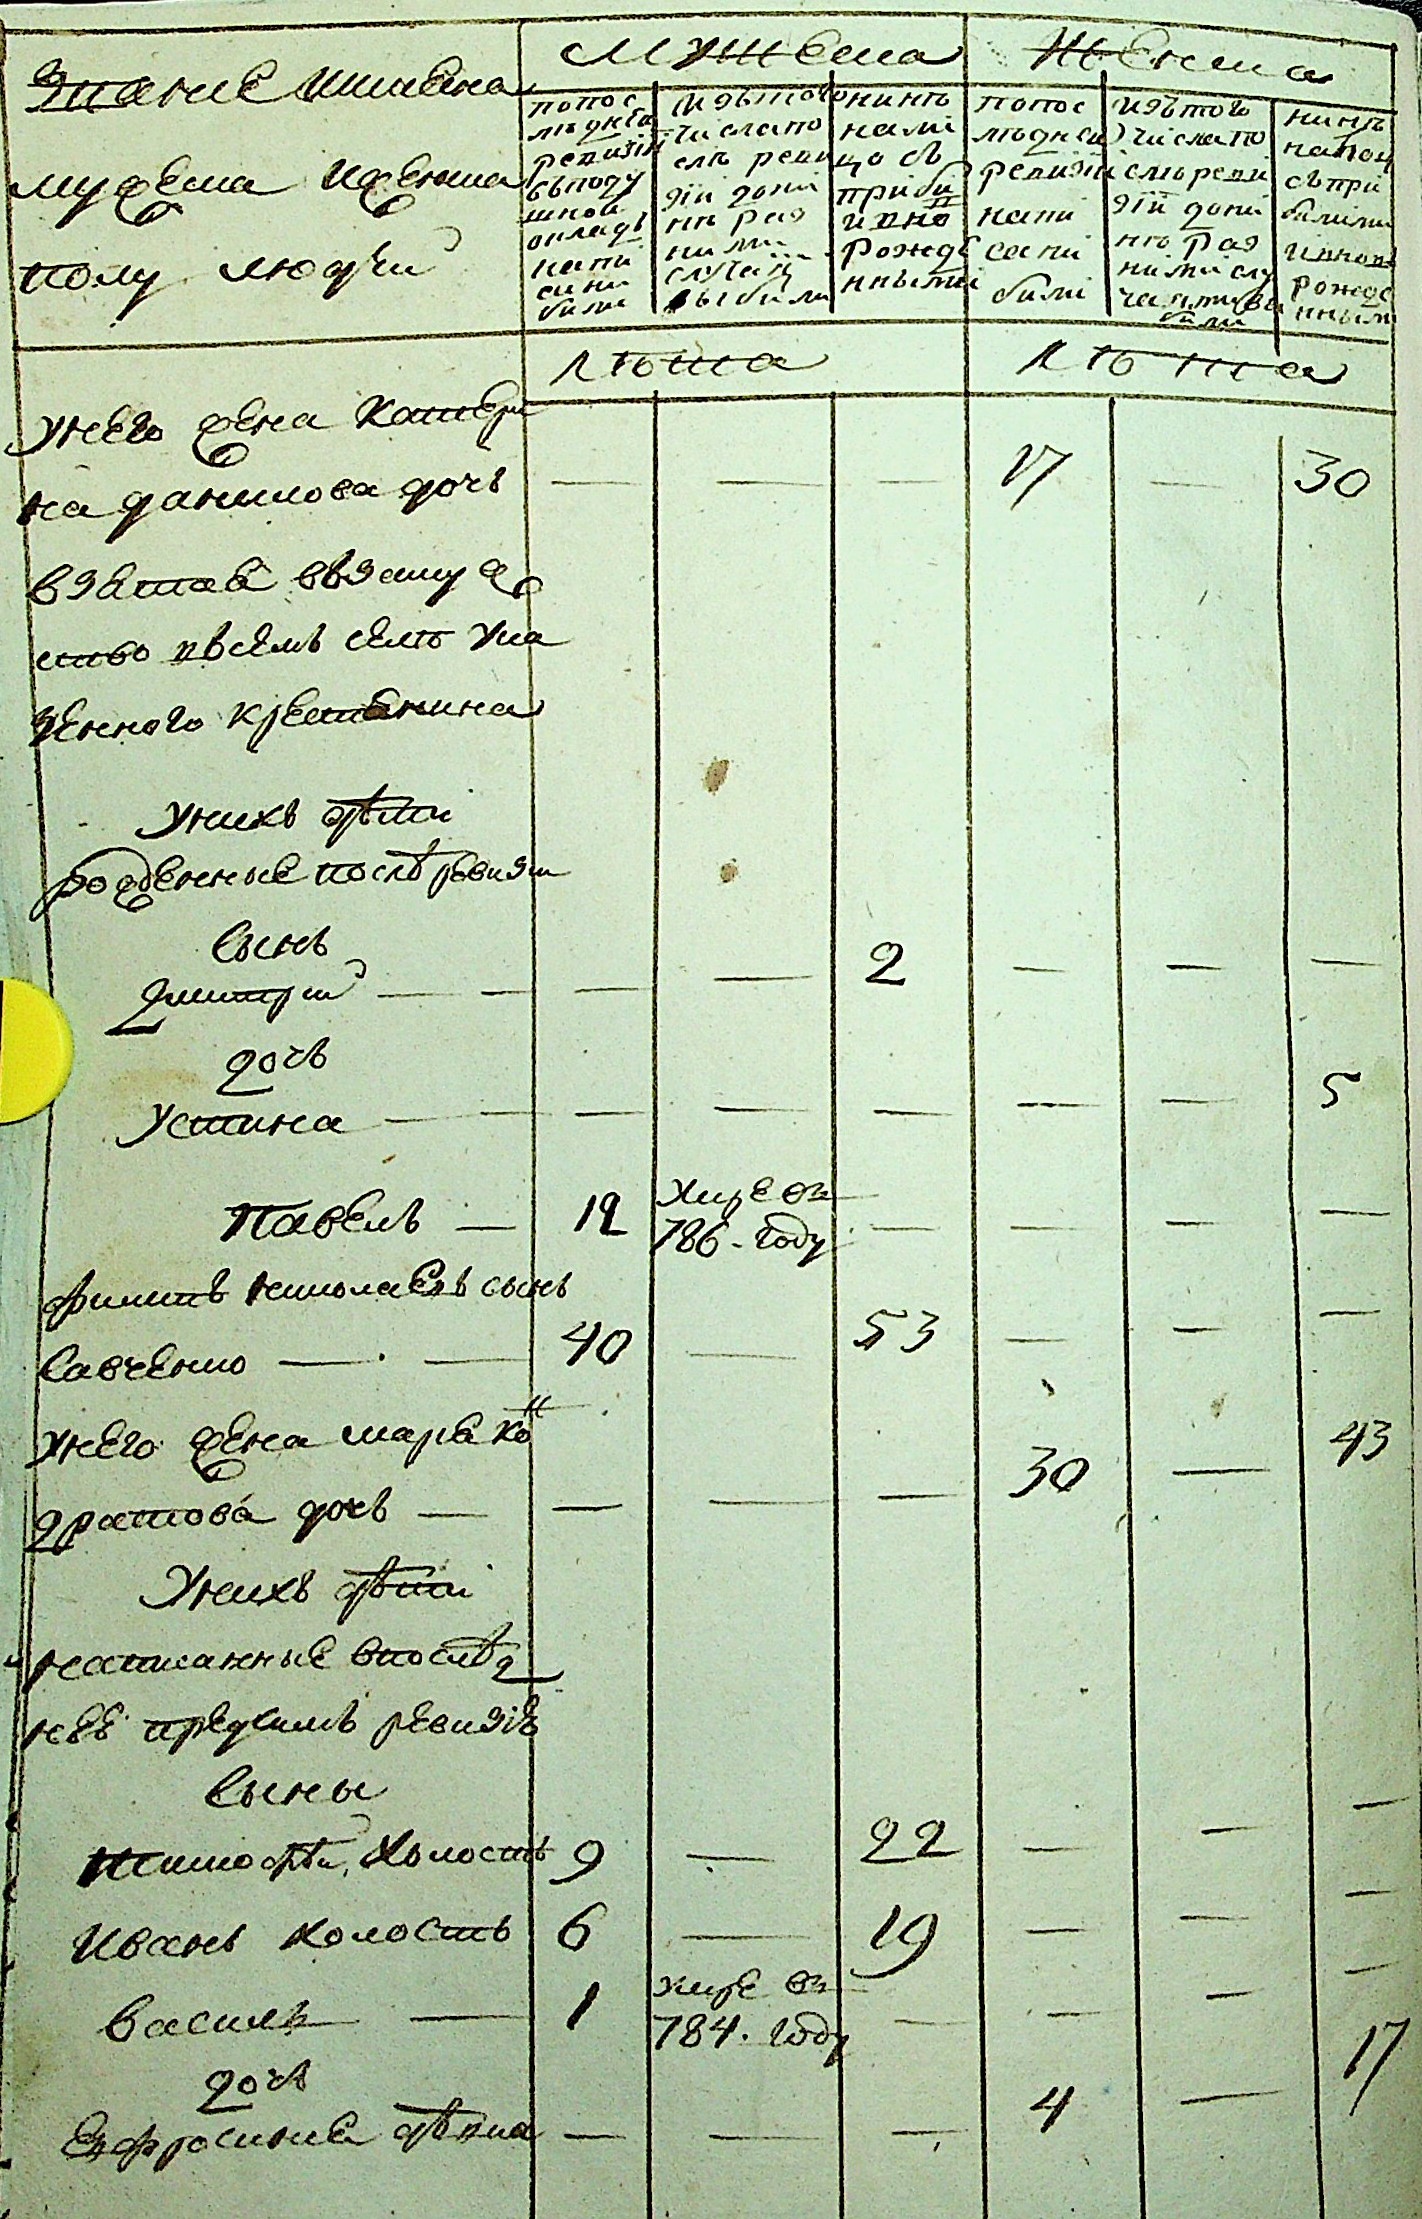 Звание и имена
мужеска и женска
полу людей
мужеска
женска
по пос
ледней
ревизии
съ поду
шной
окладъ
напи
сани
были
изъ того
числа по
слѣ реви
зіи до ни
нѣ раз
ними
случаи
выбыли
нинѣ
на ли
цо съ
прибы
и вно
рожде
нными
по пос
лѣдней
ревизіи
напи
сани
были
изъ того
числа по
слѣ реви
зіи до ни
нѣ раз
ними слу
чаями вы
были
нинѣ
на лиц
съ при
былими
и вновь
рожде
нными
лѣта
лѣта
у него жена Катери
на данилова дочь — — — 17 — 30
взятая въ замуж
ство въ семъ селѣ у ка
зенного крестянина
у нихъ дѣти
рожденные послѣ ревизіи
сынъ
Дмитрий — — — — 2 — — —
дочь
Устина — — — — — — — 5
Павелъ — 12 умре въ
786. году — — — —
филипъ николаевъ сынъ
Савченко — — 40 — 53 — — —
у него жена марья кон
дратова дочь — — — — 30 — 43
у нихъ дѣти
написанные в послѣд
нее предъ симъ ревизіе
сыны
тимофей, холостъ 9 — 22 — — —
Иванъ холостъ 6 — 19 — — —
василь — 1 умре въ
784. году — — — —
дочь
Евфросиния дѣвка — — — 4 — 17